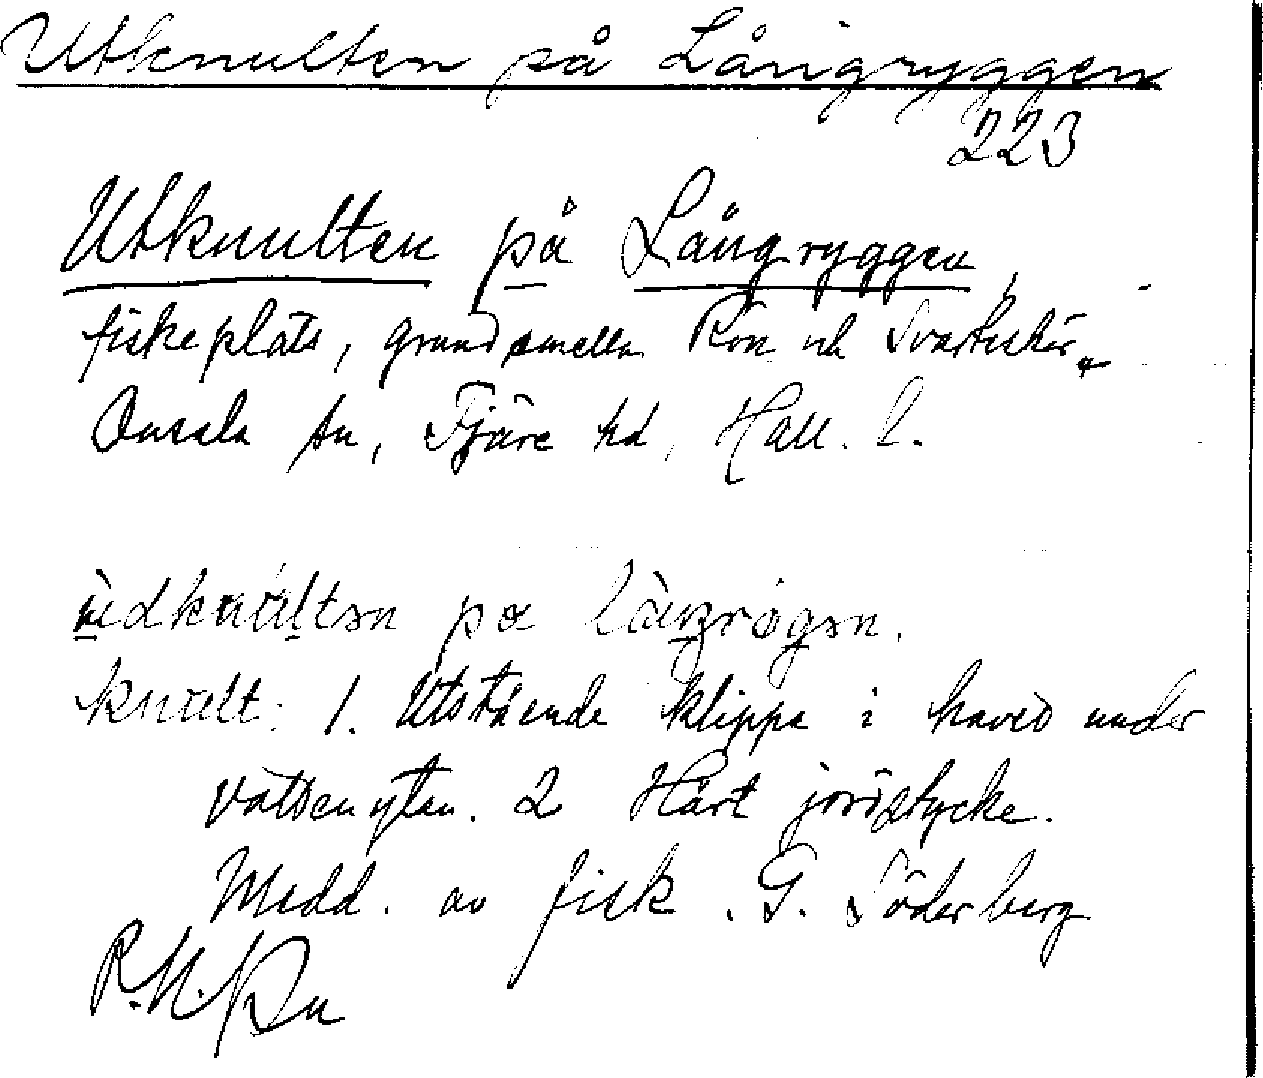 Utknulten på Långryggen
223
Utknulten på Långryggen,
fiskeplats, grund mellan Rön och Svarteskär
Onsala sn, Fjäre hd, Hall. l.
knult: 1. Utstående klippa i haved under
vattenytan. 2 Hårt jordstycke.
Medd. av fisk. G. Söderberg